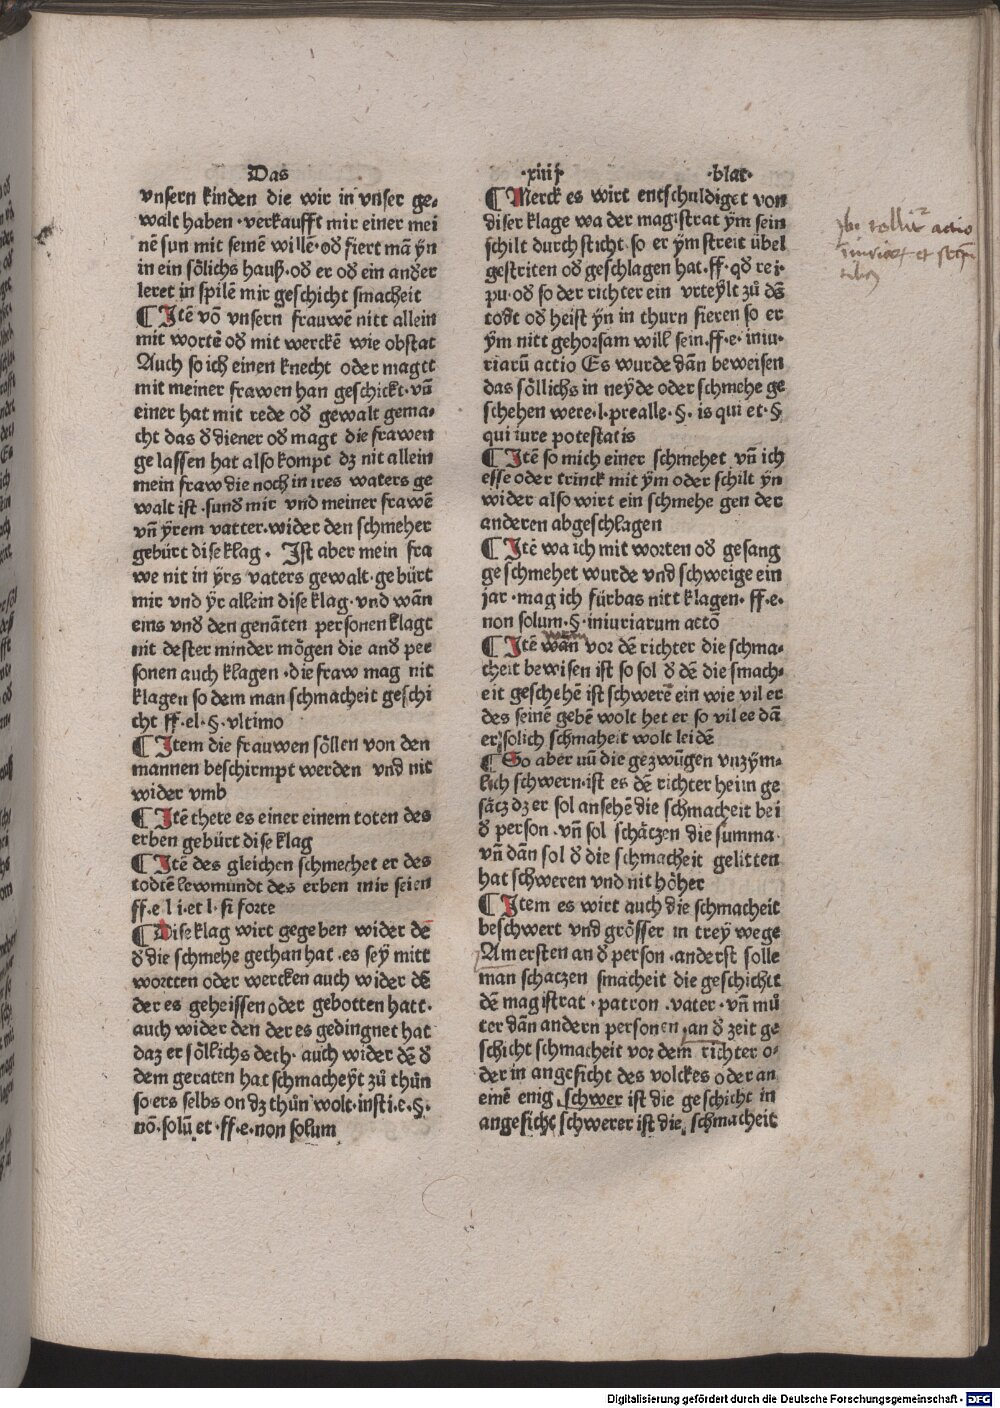 Das
vnsern kinden die wir in vnser ge-
walt haben · verkaufft mir einer mei
nē sun mit seinē willē · od̄ fiert mā ÿn
in ein sölichs hauß · od̄ er od̄ ein ander
leret in spilē mir geschicht smacheit
¶ Itē vō vnsern frauwē nitt allein
mit wortē od̄ mit werckē wie obstat
Auch so ich einen knecht oder magtt
mit meiner frawen han geschickt · vn̄
einer hat mit rede od̄ gewalt gema-
cht das d̄ diener od̄ magt die frawen
gelassen hat also kompt dz nit allein
mein fraw die noch in ires vaters ge
walt ist · sund̄ mir vnd meiner frawē
vn̄ ÿrem vatter · wider den schmeher
gebürt dise klag · Ist aber mein fra
we nit in ÿrs vaters gewalt · gebürt
mir vnd ÿr allein dise klag · vnd wān
eins vnd̄ den genāten personen klagt
nit dester minder mögen die and̄ per
sonen auch klagen · die fraw mag nit
klagen so dem man schmacheit geschi
cht ff · el · § · vltimo
¶ Item die frauwen söllen von den
mannen beschirmpt werden vnd nit
wider vmb
¶ Itē thete es einer einem toten des
erben gebürt dise klag
¶ Itē des gleichen schmechet er des
todtē lewmundt des erben mir seien
ff · e l i · et l · si forte
¶ Dise klag wirt gegeben wider dē
d̄ die schmehe gethan hat · es seÿ mitt
wortten oder wercken auch wider dē
der es geheissen oder gebotten hatt ·
auch wider den der es gedingnet hat
daz er söllichs deth · auch wider dē d̄
dem geraten hat schmacheÿt zů thůn
so ers selbs on dz thůn wolt · insti · e · § ·
nō · solū et · ff · e · non solum
· xiiij · blat ·
¶ Merck es wirt entschuldiget von
diser klage wa der magistrat ÿm sein
schilt durch sticht · so er ÿm streit übel
gestriten od̄ geschlagen hat · ff · qd̄ rei ·
pu · od̄ so der richter ein vrteÿlt zů dē
todt od̄ heist ÿn in thurn fieren so er
ÿm nitt gehorsam will sein · ff · e · iniu-
riarū actio Es wurde dān beweisen
das söllichs in neÿde oder schmehe ge
schehen were · l · prealle · § · is qui et · §
qui iure potestatis
¶ Itē so mich einer schmehet vn̄ ich
esse oder trinck mit ÿm oder schilt ÿn
wider also wirt ein schmehe gen der
anderen abgeschlagen
¶ Itē wa ich mit worten od̄ gesang
geschmehet wurde vnd schweige ein
jar · mag ich fürbas nitt klagen · ff · e ·
non solum · § · iniuriarum actō
¶ Itē wān vor dē richter die schma-
cheit bewisen ist so sol d̄ dē die smach-
eit geschehē ist schwerē ein wie vil er
des seinē gebē wolt het er so vil ee dā
er solich schmaheit wolt leidē
¶ So aber nū die gezwügen vnzÿm-
lich schwern · ist es dē richter heim ge
sätz dz er sol ansehē die schmacheit bei
d̄ person · vn̄ sol schätzen die summa ·
vn̄ dān sol d̄ die schmacheit gelitten
hat schweren vnd nit höher
¶ Item es wirt auch die schmacheit
beschwert vnd grösser in treÿ wege
Am ersten an d̄ person · anderst solle
man schatzen smacheit die geschicht
dē magistrat · patron · vater · vn̄ mů
ter dān andern personen an d̄ zeit ge
schicht schmacheit vor dem richter o-
der in angesicht des volckes oder an
einē enig · schwer ist die geschicht in
angesicht schwerer ist die schmacheit
tollit actio
et
Digitalisierung gefördert durch die Deutsche Forschungsgemeinschaft - DFG